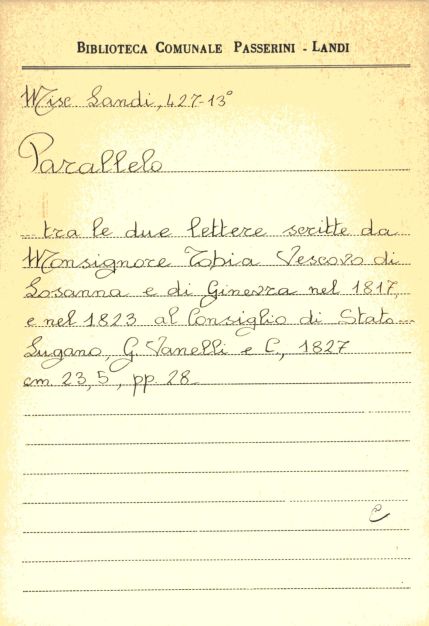 BIBLIOTECA COMUNALE PASSERINI - LANDI
Misc Landi, 427-13°
Parallelo
tra le due lettere scritte da
Monsignore Tobia Vescovo di
Losanna e di Ginevra nel 1817,
e nel 1823 al Consiglio di Stato
Lugano, G. Vanelli e C., 1827
cm. 23,5, pp. 28
C